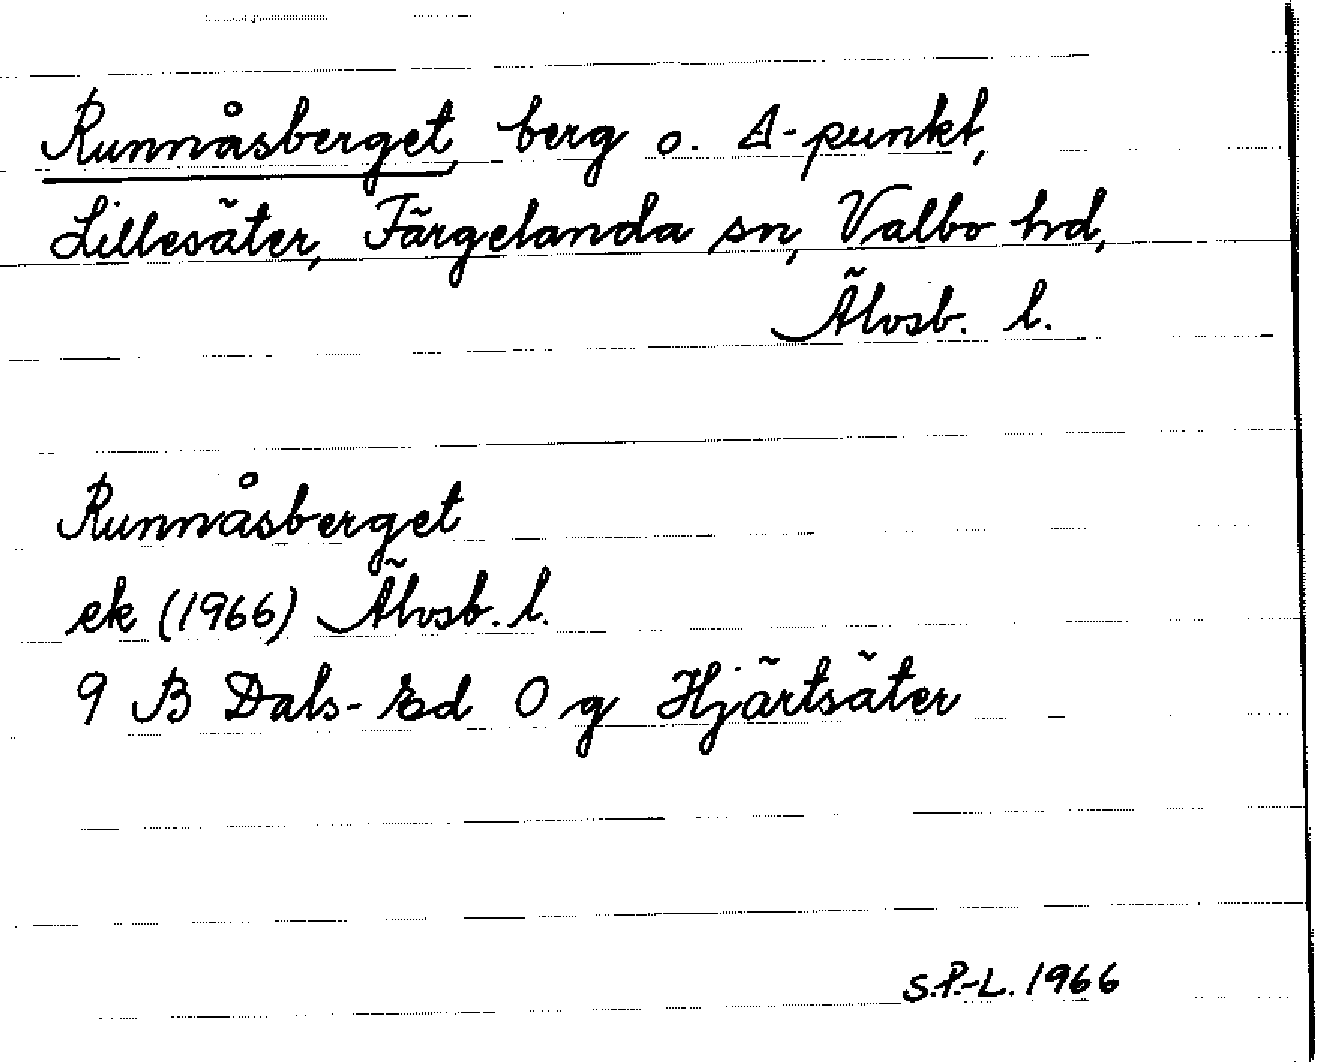 Runnåsberget, berg o. Δ-punkt,
Lillesäter, Färgelanda sn, Valbo hd,
Älvsb. l.
Runnåsberget
ek (1966) Älvsb. l.
9 B Dals-Ed 0 g Hjärtsäter
S.P.-L. 1966